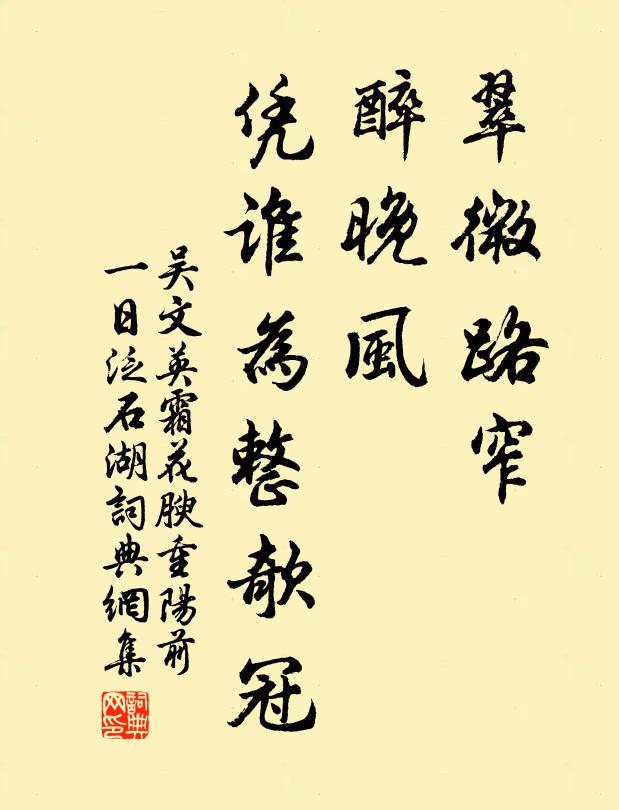 翠微路窄
醉晚風
凭誰為整欹冠
吴文英霜花腴重陽前
一日泛石湖詞典網集
詞典網印